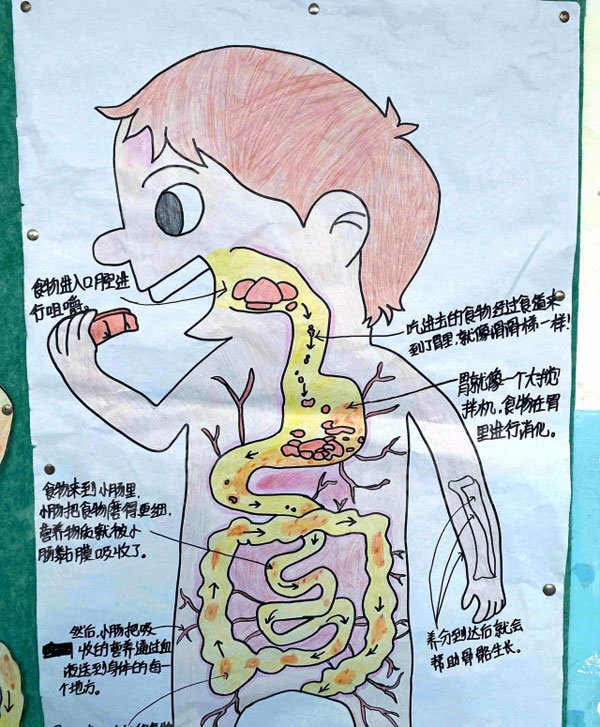 食物进入口腔进
行咀嚼。
吃进去的食物经过食道来
到了胃里,就像滑滑梯一样!
胃就像一个大搅
拌机,食物在胃
里进行消化。
食物来到小肠里,
小肠把食物磨得更细,
营养物质就被小
肠黏膜吸收了。
然后,小肠把吸
收的营养通过血
液送到身体的每一
个地方。
养分到达后就会
帮助骨骼生长。